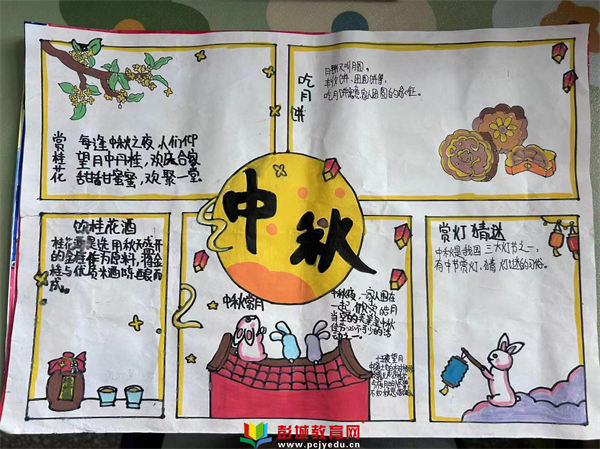 赏桂花
每逢中秋之夜,人们仰
望月中丹桂,欢庆合家
甜甜蜜蜜,欢聚一堂
吃月饼
月饼又叫月团、
丰收饼、团圆饼等,
中秋
饮桂花酒
的金桂作为原料,
桂与优质米酒陈酿而
成。
中秋赏月
中秋夜,一家人围在
一起,欣赏皓月
当空的美景是中秋
佳节必不可少的活
动之一。
十五夜望月
赏灯猜谜
中秋是我国三大灯节之一,
有中节赏灯、猜灯谜的习俗。
彭城教育网
www.pcjyedu.cn